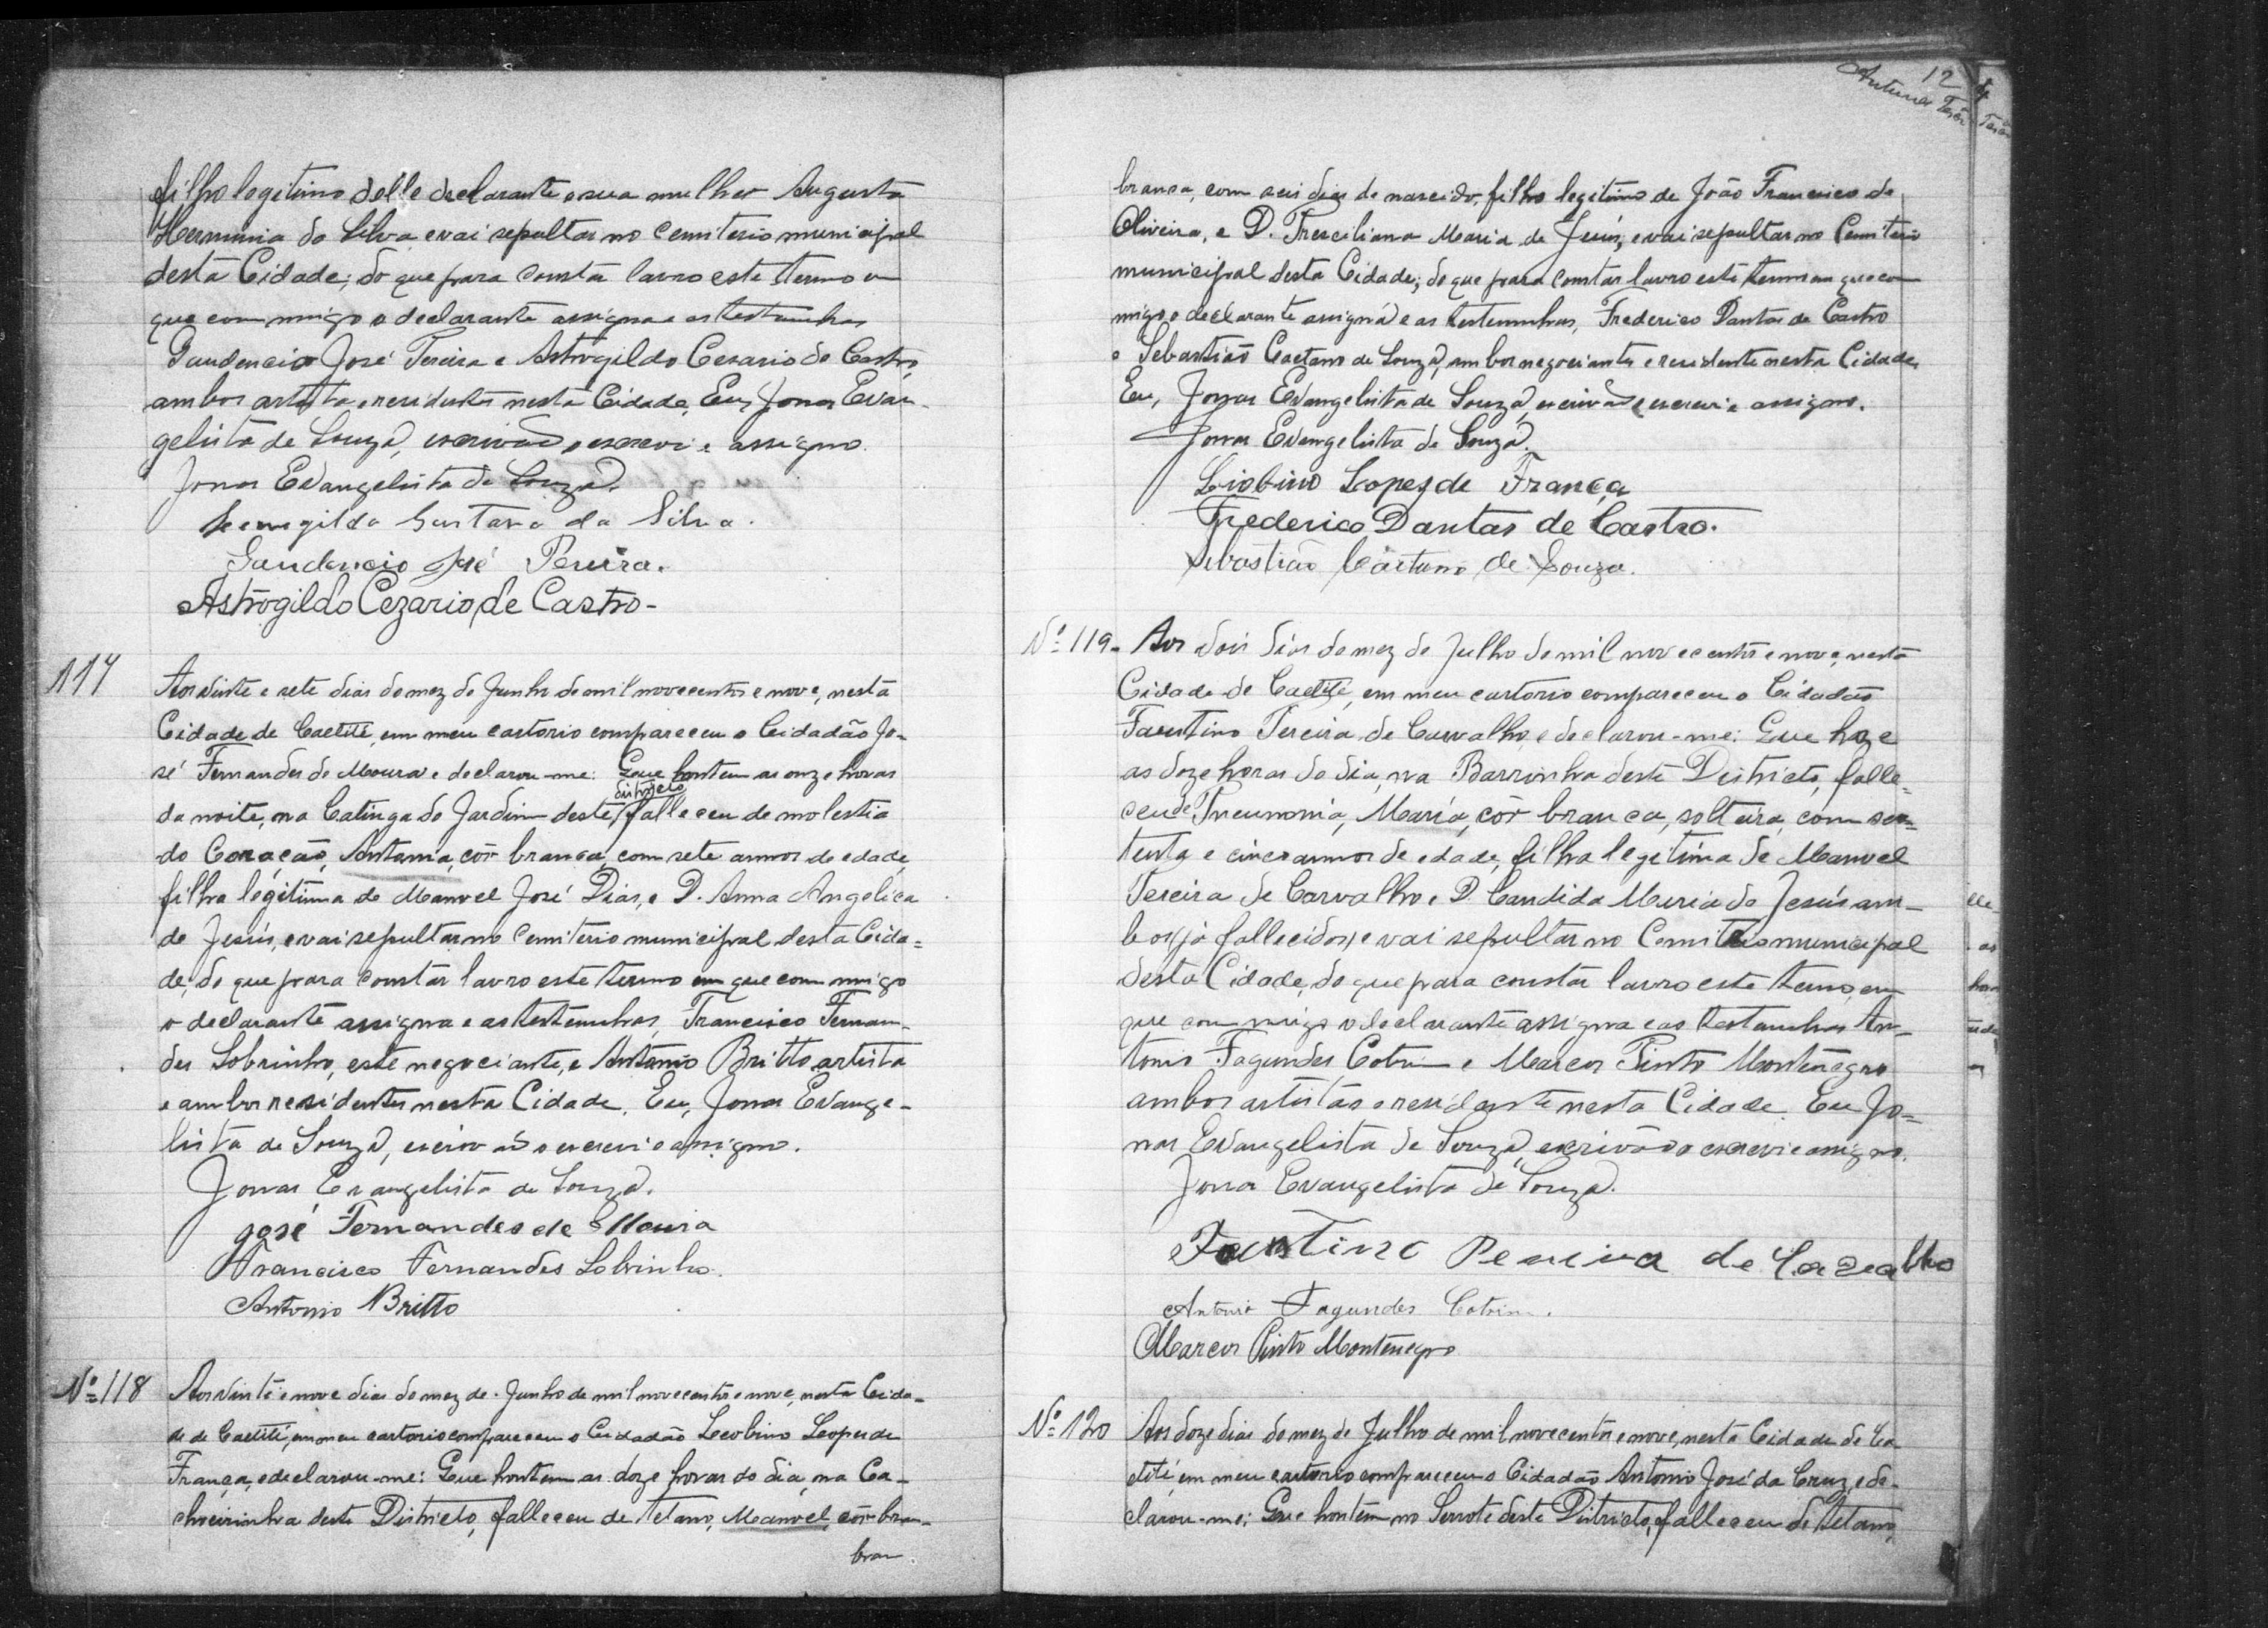 filho legitimo delle declarante e sua mulher Augusta
Herminia da Silva, e vai sepultar no Cemiterio municipal
desta Cidade; do que para consta lavro este termo em
que commigo o declarante assigna e as testemunhas
Gaudencio José Pereira e Astrogildo Cesario de Castro,
ambos artista e residentes nesta Cidade, Eu, Jonas Evan-
gelista de Souza, escrivão o escrevi e assigno.
Jonas Evangelista de Souza.
Hemigildo Gustavo da Silva.
Gaudencio José Pereira.
Astrogildo Cezario de Castro-
117
Aos vinte e sete dias do mez de Junho de mil novecentos e nove, nesta
Cidade de Caetité, em meu cartorio compareceu o Cidadão Jo-
sé Fernandes de Moura e declarou-me: Que hontem as onze horas
districto
da noite, na Catinga do Jardim deste, falleceu de molestia
do Coração, Antonia, côr branca, com sete annos de edade,
filha legitima de Manoel José Dias, e D. Anna Angelica
de Jesús, e vai sepultar no Cemiterio municipal desta Cida-
de, do que para constar lavro este termo em que commigo
o declarante assigna e as testemunhas, Francisco Fernan-
des Sobrinho, este negociante, e Antonio Britto, artista
e ambos residentes nesta Cidade. Eu, Jonas Evange-
lista de Souza, escrivão o escrevi e assigno.
Jonas Evangelista de Souza.
José Fernandes de Moura
Francisco Fernandes Sobrinho.
Antonio Britto
Nº 118
Aos vinte e nove dias do mez de Junho de mil novecentos e nove, nesta Cida-
de de Caetité, em meu cartorio compareceu o Cidadão Leobino Lopes de
França, e declarou-me: Que hontem as doze horas do dia, na Ca-
choeirinha deste Districto, falleceu de tetano, Manoel, côr bran-
bran
12
branca, com seis dias de nascido, filho legitimo de João Francisco de
Oliveira, e D. Treseiliana Maria de Jesús, e vai sepultar no Cemiterio
municipal desta Cidade; do que para constar lavro este termo em que com
migo o declarante assigna e as testemunhas, Frederico Dantas de Castro
e Sebastião Caetano de Souza, ambos negociantes e residente nesta Cidade,
Eu, Jonas Evangelista de Souza, escrivão o escrevi e assigno.
Jonas Evangelista de Souza.
Liobino Lopes de França
Frederico Dantas de Castro.
Sebastião Caetano de Souza.
Nº 119-
Aos dois dias do mez de Julho de mil novecentos e nove, nesta
Cidade de Caetité, em meu cartorio compareceu o Cidadão
Faustino Pereira de Carvalho, e declarou-me: Que hoze
as doze horas do dia, na Barrinha deste Districto, falle-
ceu de Pneumonia, Maria, côr branca, solteira, com ses-
senta e cinco annos de edade, filha legitima de Manoel
Pereira de Carvalho e D. Candida Maria de Jesús am-
bos já fallecidos, e vai sepultar no Cemiterio municipal
desta Cidade, do que para constar lavro este termo, em
que commigo o declarante assigna e as testemunhas An-
tonio Fagundes Cotrim e Marcos Pinto Montenegro
ambos artistas e residente nesta Cidade. Eu Jo-
nas Evangelista de Souza, escrivão o escrevi e assigno.
Jonas Evangelista de Souza.
Faustino Pereira de Carvalho
Antonio Fagundes Cotrim.
Marcos Pinto Montenegro
Nº 120
Aos doze dias do mez de Julho de mil novecentos e nove, nesta Cidade de Ca-
etité, em meu cartorio compareceu o Cidadão Antonio José da Cruz, e de-
clarou-me: Que hontem no Serrote deste Districto, falleceu de tetano,